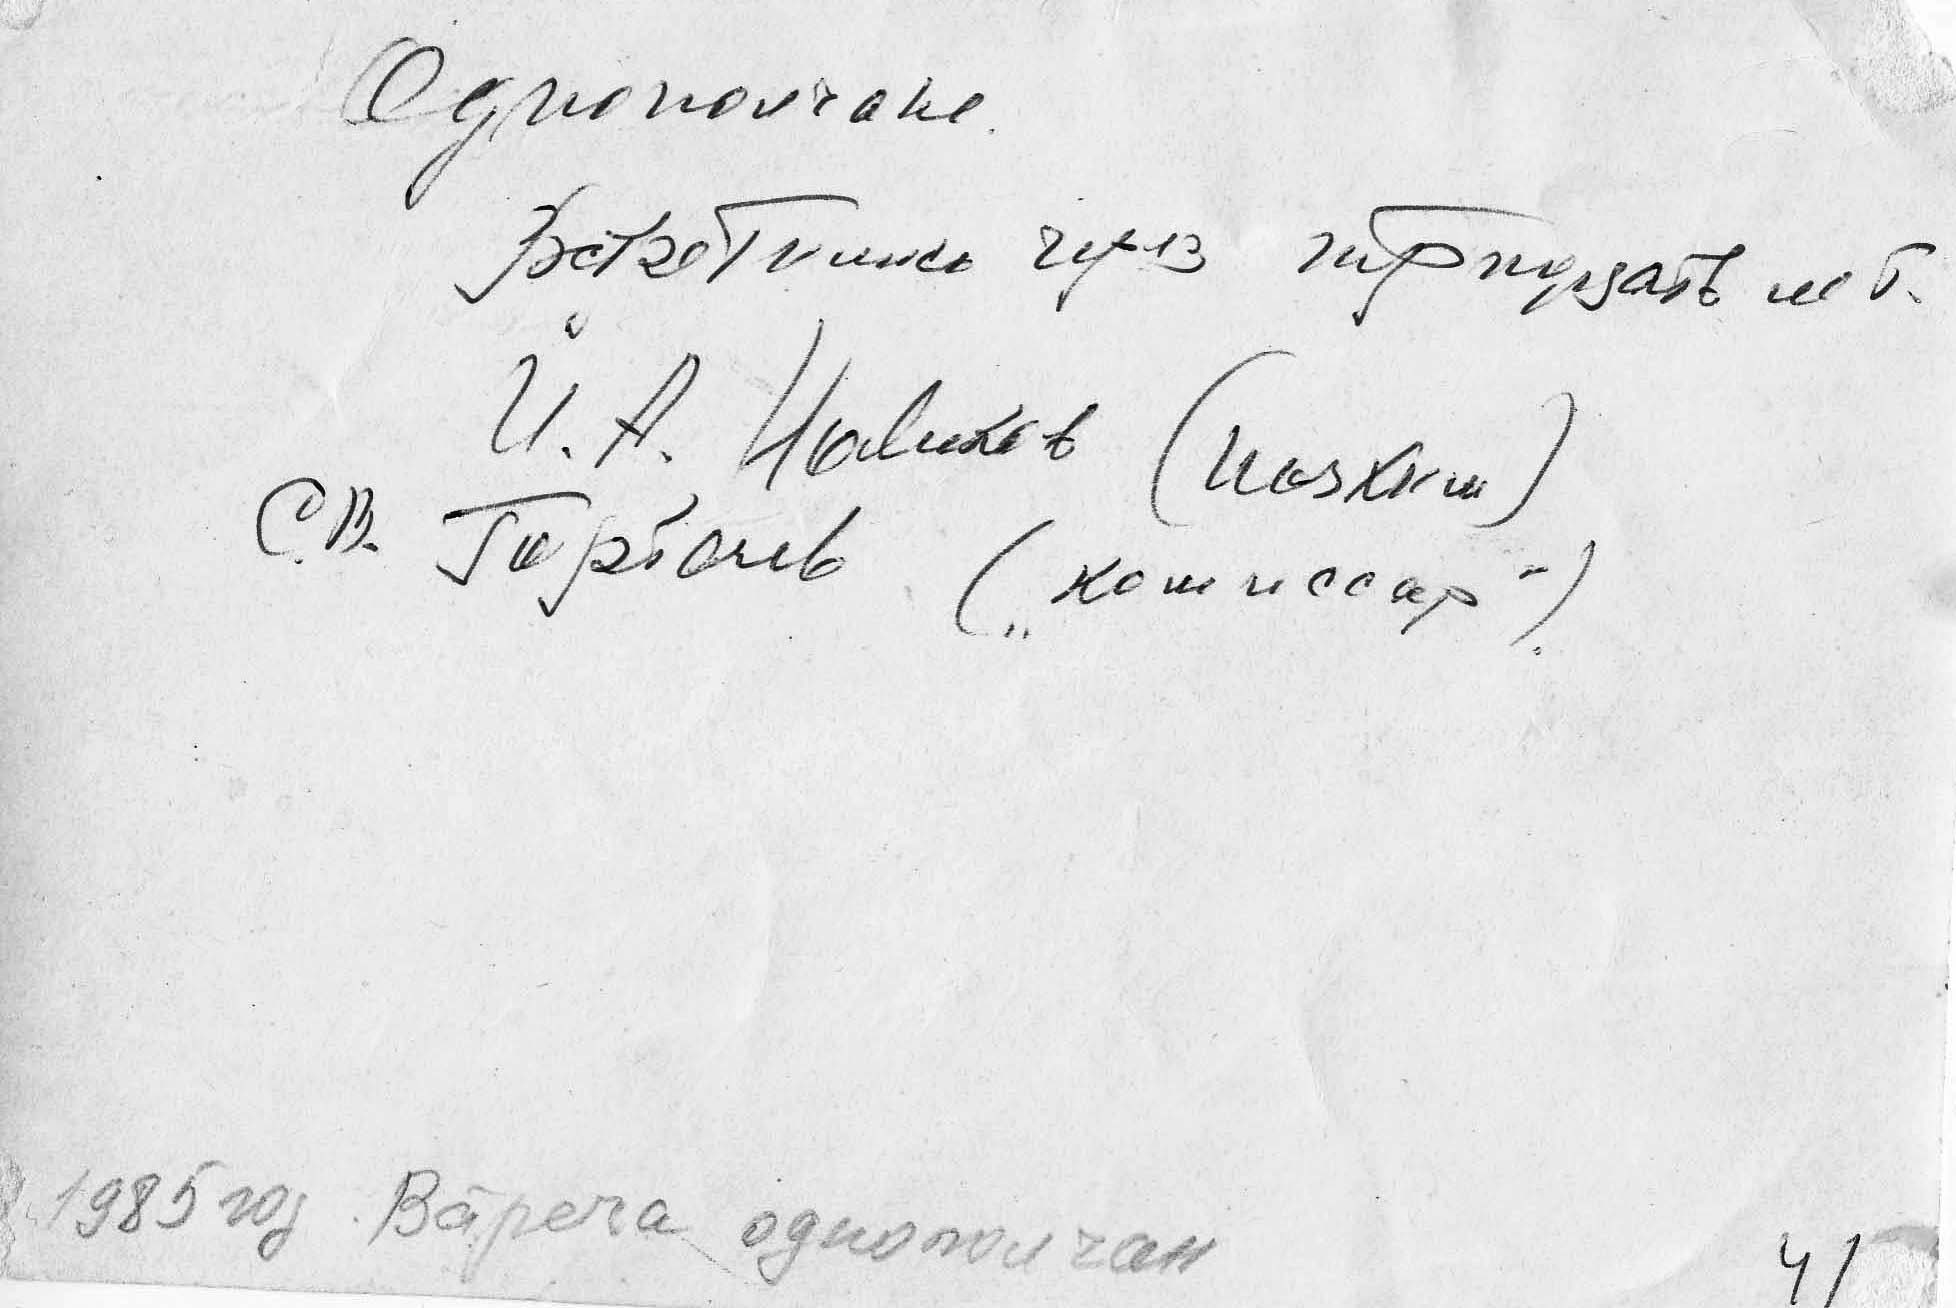 Однополчане.
Встретились через тридцать лет.
И. А. Новиков
С.В. Горбачев („комиссар“).
1985 год. Встреча однополчан
41